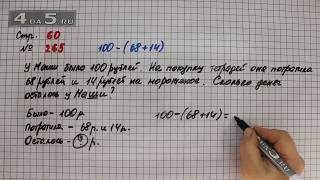 4DA5.RU
Стр. 60
№ 265 100-(68+14)
У Маши было 100 рублей. На покупку тетрадей она потратила
68 рублей и 14 рублей на мороженое. Сколько денег
осталось у Маши?
Было - 100р.
Потратила - 68 р. и 14р.
Осталось - ? р.
100-(68+14)=